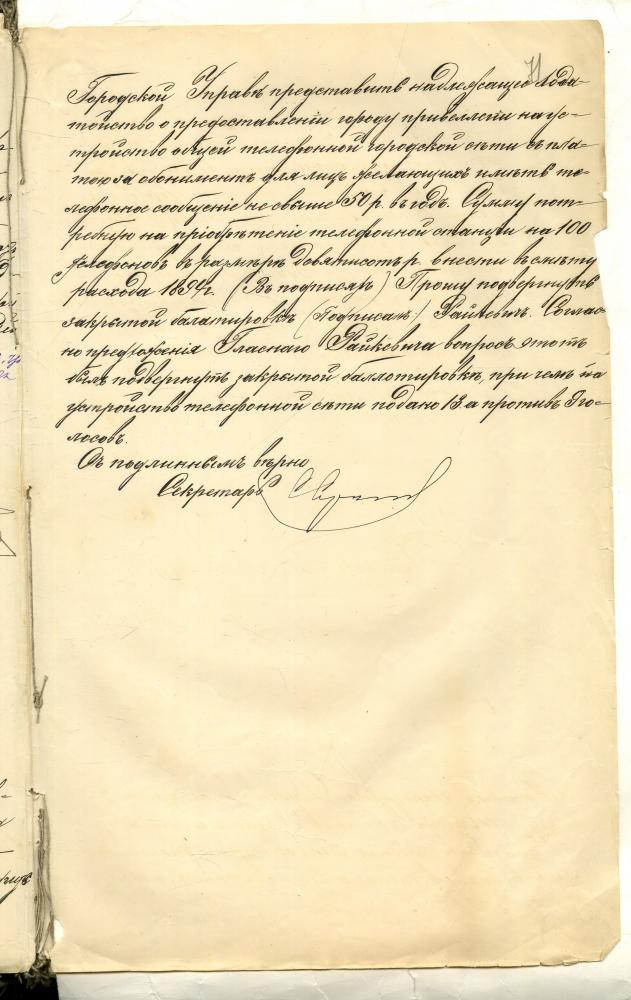 71
Городской Управѣ представить надлежащее хода-
тойство о предоставленіи городу привеллегіи на ус-
тройство общей телефонной городской сѣти съ пла-
тою за абониментъ для лицъ желающихъ имѣть те-
лефонное сообщеніе не свыше 50 р. въ годъ. Сумму пот-
ребную на пріобрѣтеніе телефонной станціи на 100
телефоновъ въ размѣрѣ девятисотъ р. внести въ смѣту
расхода 1894 г. (Въ подписяхъ) Прошу подвергнуть
закрытой балатировкѣ (Подписалъ:) Райкевичъ. Соглас-
но предложенія Гласнаго Райкевича вопросъ этотъ
былъ подвергнутъ закрытой баллотировкѣ, при чемъ на
устройство телефонной сѣти подано 13. а противъ 9 го-
лосовъ.
Съ подлиннымъ вѣрно
Секретарь